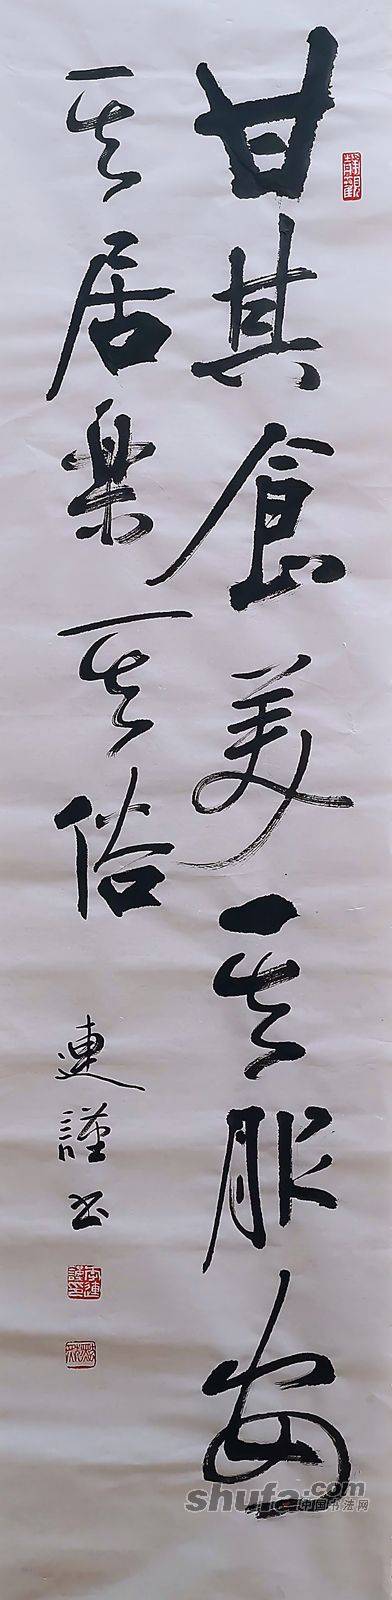 甘其食美其服安
其居樂其俗
連謹书
靜觀
shufa.com
中国书法网